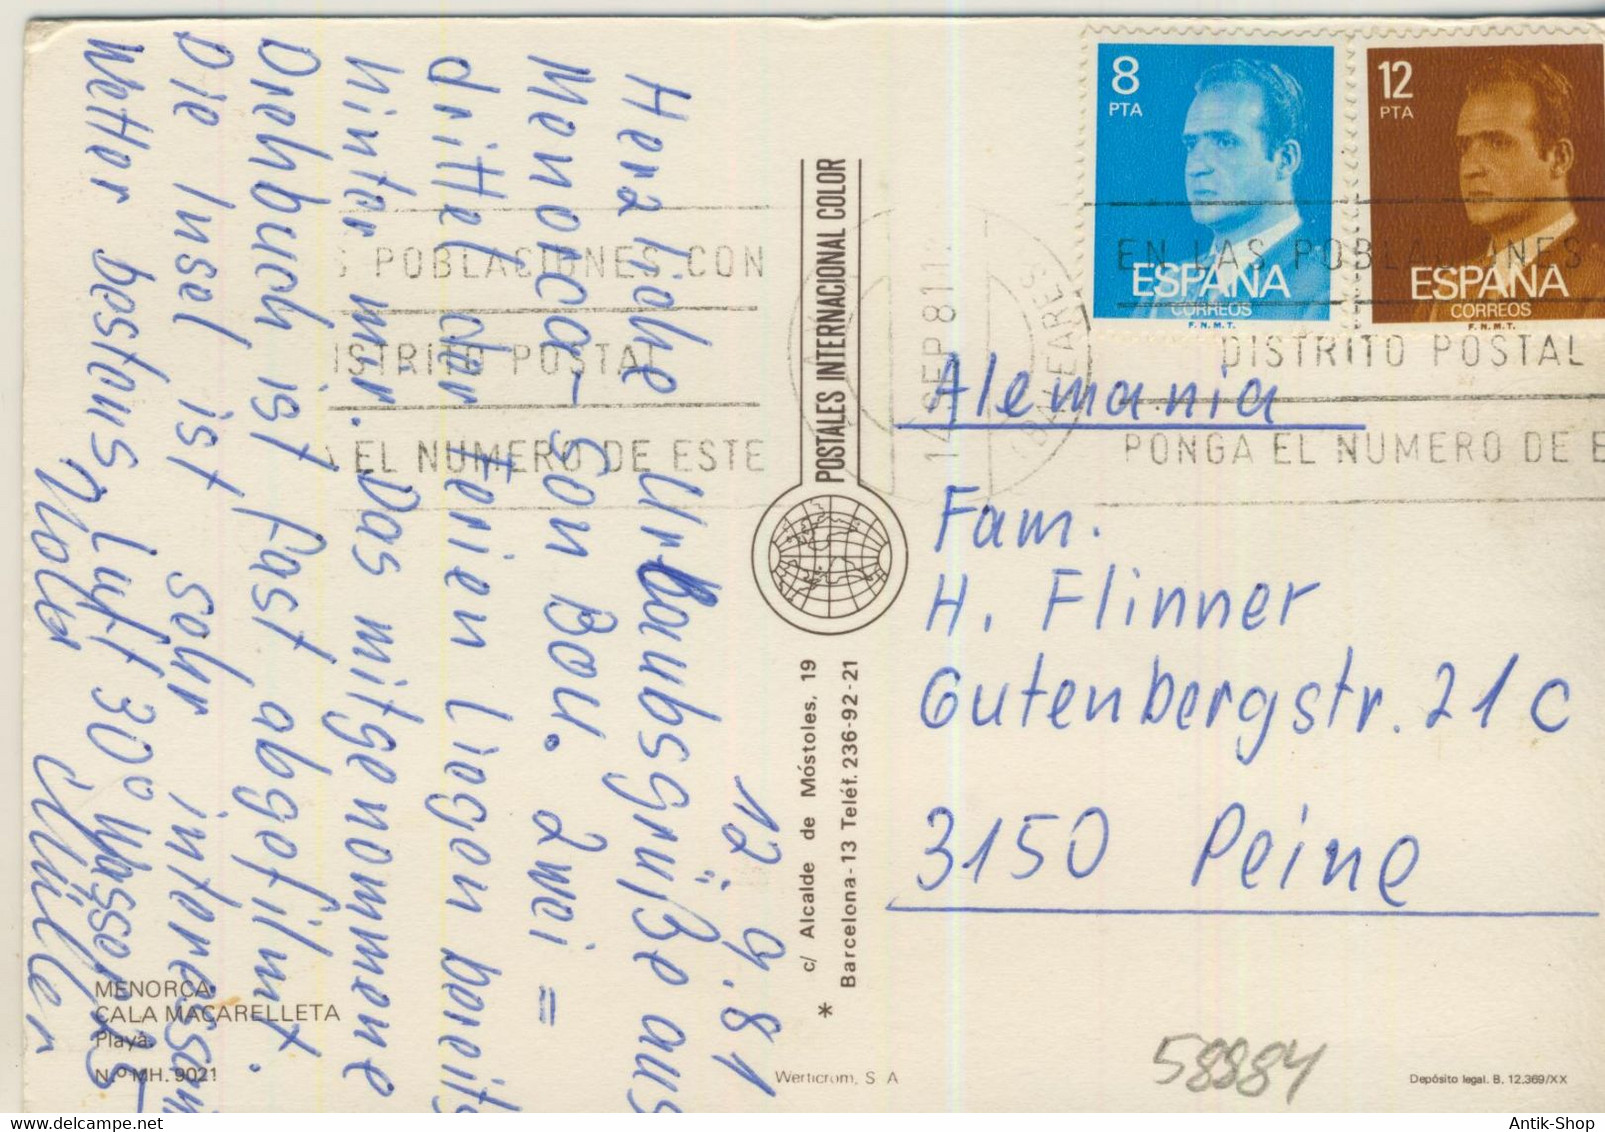 12.9.81
Herzliche Urlaubsgrüße aus
Menorca - Son Bou. Zwei =
drittel der Ferien liegen bereits
hinter mir. Das mitgenommene
Drehbuch ist fast abgefilmt.
Die Insel ist sehr interessant
Wetter bestens Luft 30° Wasser 25
Müller
8
PTA
ESPAÑA
CORREOS
F.N.M.T.
12
PTA
ESPAÑA
CORREOS
F.N.M.T.
S POBLACIONES CON
DISTRITO POSTAL
A EL NUMERO DE ESTE
14 SEP 81
(BALEARES)
EN LAS POBLACIONES
DISTRITO POSTAL
PONGA EL NUMERO DE E
Alemania
Fam.
H. Flinner
Gutenbergstr. 21 C
3150 Peine
POSTALES INTERNACIONAL COLOR
c/ Alcalde de Móstoles, 19
Barcelona-13 Teléf. 236-92-21
*
MENORCA
CALA MACARELLETA
Playa.
N.º MH. 9021
Werticrom, S A
58884
Depósito legal. B. 12.369/XX
Antik-Shop